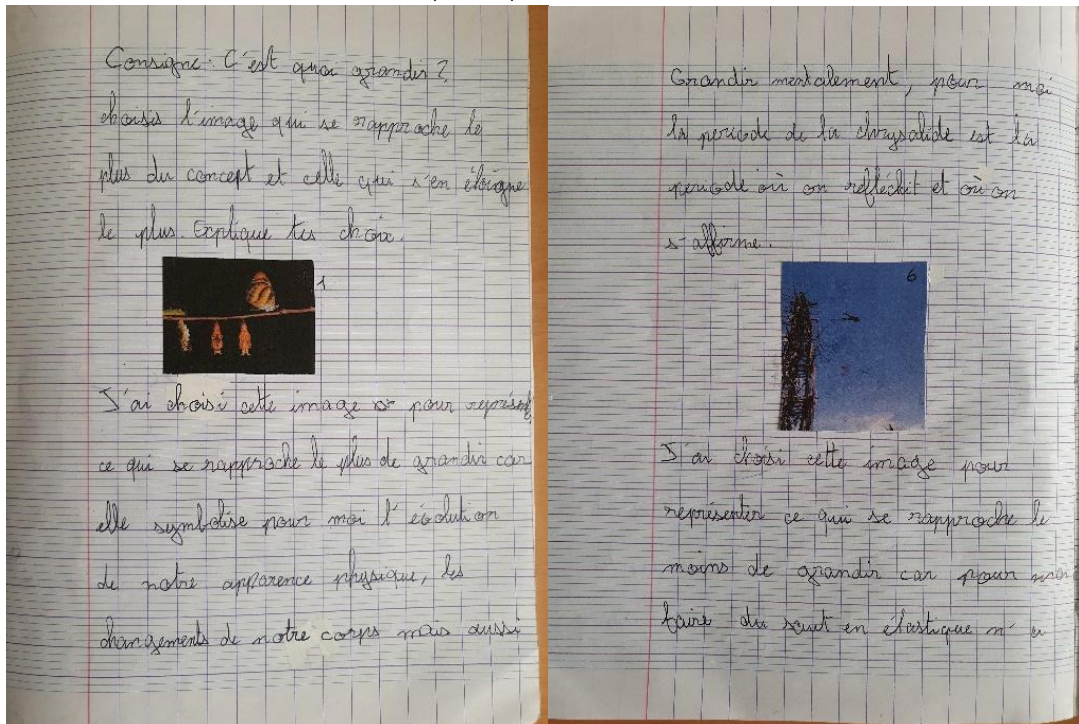 Consigne : C'est quoi grandir ?
choisis l'image qui se rapproche le
plus du concept et celle qui s'en éloigne
le plus. Explique tes choix.
1
J'ai choisi cette image pour représenter
ce qui se rapproche le plus de grandir car
elle symbolise pour moi l'évolution
de notre apparence physique, les
changements de notre corps mais aussi
Grandir mentalement, pour moi
la periode de la chrysalide est la
periode où on refléchit et où on
s'affirme.
6
J'ai choisi cette image pour
représenter ce qui se rapproche le
moins de grandir car pour moi
faire du saut en élastique n'a